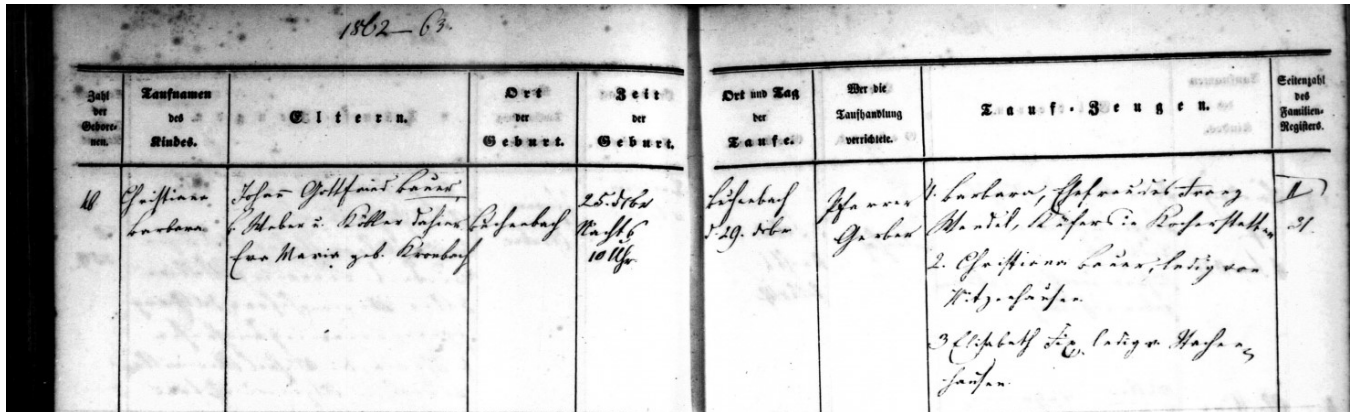 1862–63.
Zahl der Gebore-nen.
Taufnamen des Kindes.
Eltern.
Ort der Geburt.
Zeit der Geburt.
Ort und Tag der Taufe.
Wer die Taufhandlung verrichtete.
Tauf-Zeugen.
Seitenzahl des Familien-Registers.
Christiana
Barbara
Johann Gottfried Bauer,
Weber u. Köbler dahier
Eva Maria geb. Kronbach
Buchenbach
25. Dcbr
Nachts
10 Uhr.
Buchenbach
d. 29. Dcbr
Pfarrer
Gerber
1. Barbara, Ehefrau des Franz
Wendel, Küfers in Kocherstetten
2. Christiana Bauer, ledig von
Witzenhausen
3 Elisabeth ledig v. Stachen
hausen.
II
31.